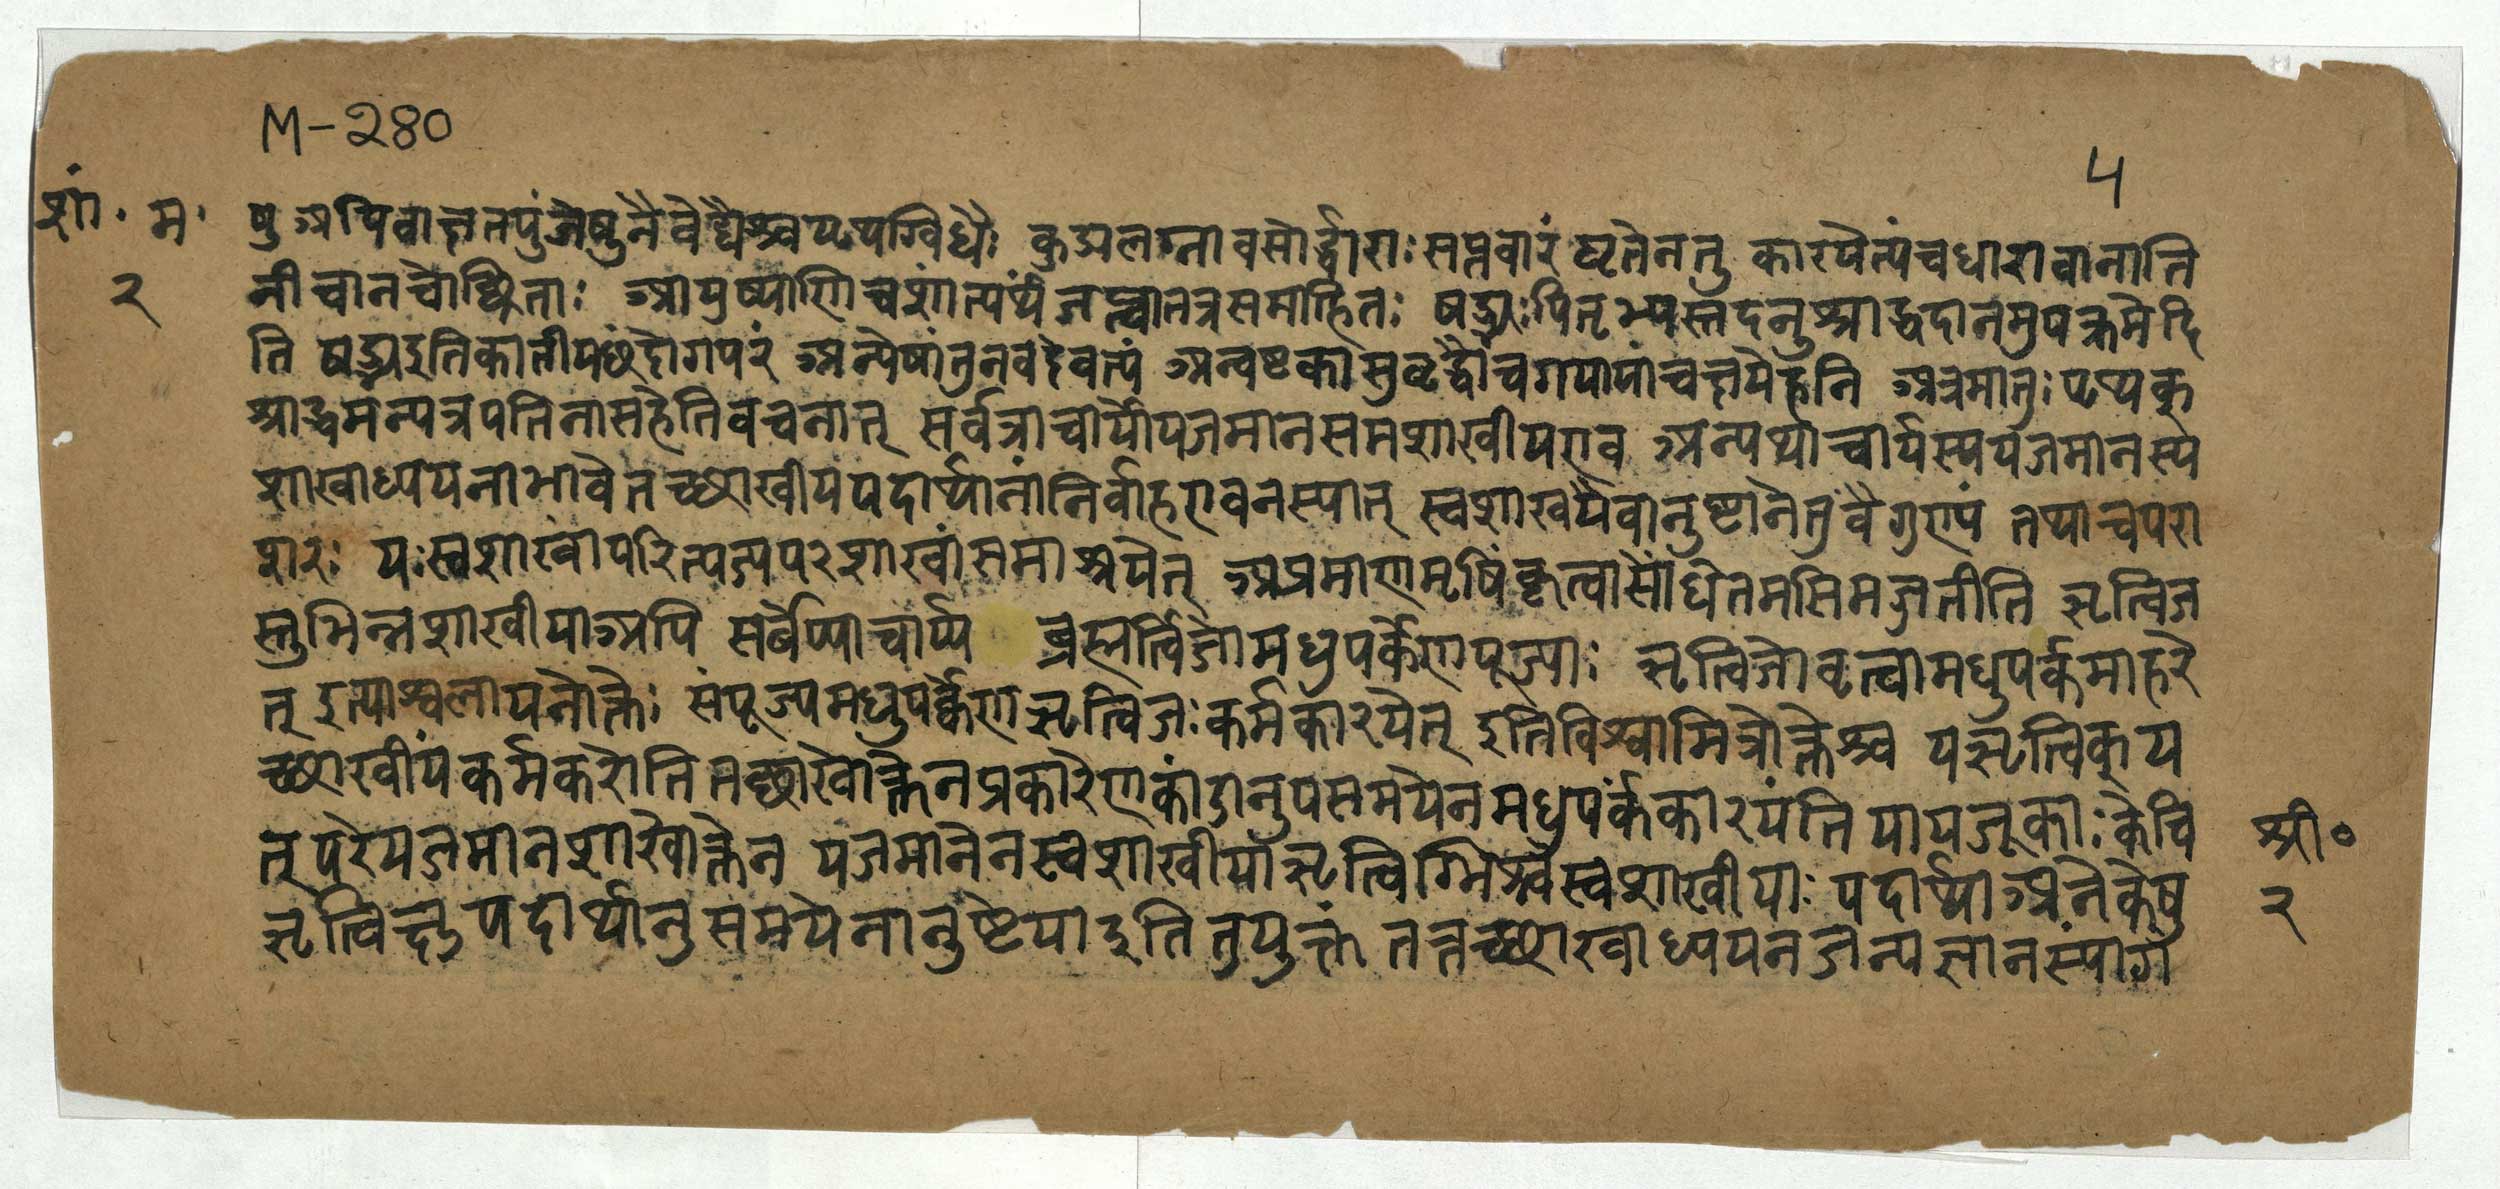 M-२४०
५
शां. म.
२
षु अपिवाक्षतपुंजेषुनैवेद्यैश्चपृथग्विधैः कुड्यलग्नावसोर्द्धाराः सप्तवारं घृतेनतु कारयेत्पंचधारावानाति
नीचानचोच्छ्रिताः आयुष्याणिचशांत्यर्थंजप्त्वातत्रसमाहितः षड्भ्यः पितृभ्यस्तदनुश्राद्धदानमुपक्रमेदि
ति षड्भ्यइतिकातीयछंदोगपरं अन्येषांतुनवदैवत्यं अन्वष्टकासुवृद्धौचगयायांचक्षयेहनि अत्रमातुः पृथक्
श्राद्धमन्यत्रपतिनासहेतिवचनात् सर्वत्राचार्योयजमानसमशाखीयएव अन्यथाचार्यस्ययजमानस्य
शाखाध्ययनाभावेतच्छाखीयपदार्थानांनिर्वाहएवनस्यात् स्वशाखयैवानुष्टानेतुवैगुण्यं तथाचपरा
शरः यःस्वशाखांपरित्यज्यपरशाखांसमाश्रयेत् अप्रमाणमृषिंकृत्वासोंधेतमसिमज्जतीति ऋत्विज
स्तुभिन्नशाखीयाअपि सर्वेप्याचार्य्य ब्रह्मर्त्विजोमधुपर्केणपूज्याः ऋत्विजोवृत्वामधुपर्कमाहरे
त् इत्याश्वलायनोक्तेः संपूज्यमधुपर्केणऋत्विजः कर्मकारयेत् इतिविश्वामित्रोक्तेश्च यऋत्विक्य
च्छाखीयंकर्मकरोति तच्छाखोक्तेनप्रकारेणकांडानुपसमयेनमधुपर्ककारयंति यायजूकाः केचि
त् परेयजमानशाखोक्तेन यजमानेनस्वशाखीयाऋत्विग्भिश्चस्वशाखीयाः पदार्थाअनेकेषु
ऋत्विक्षु पदार्थानुसमयेनानुष्टेयाइति तुयुक्तं तत्तच्छाखाध्ययनजन्यज्ञानसंपाग
श्री०
२